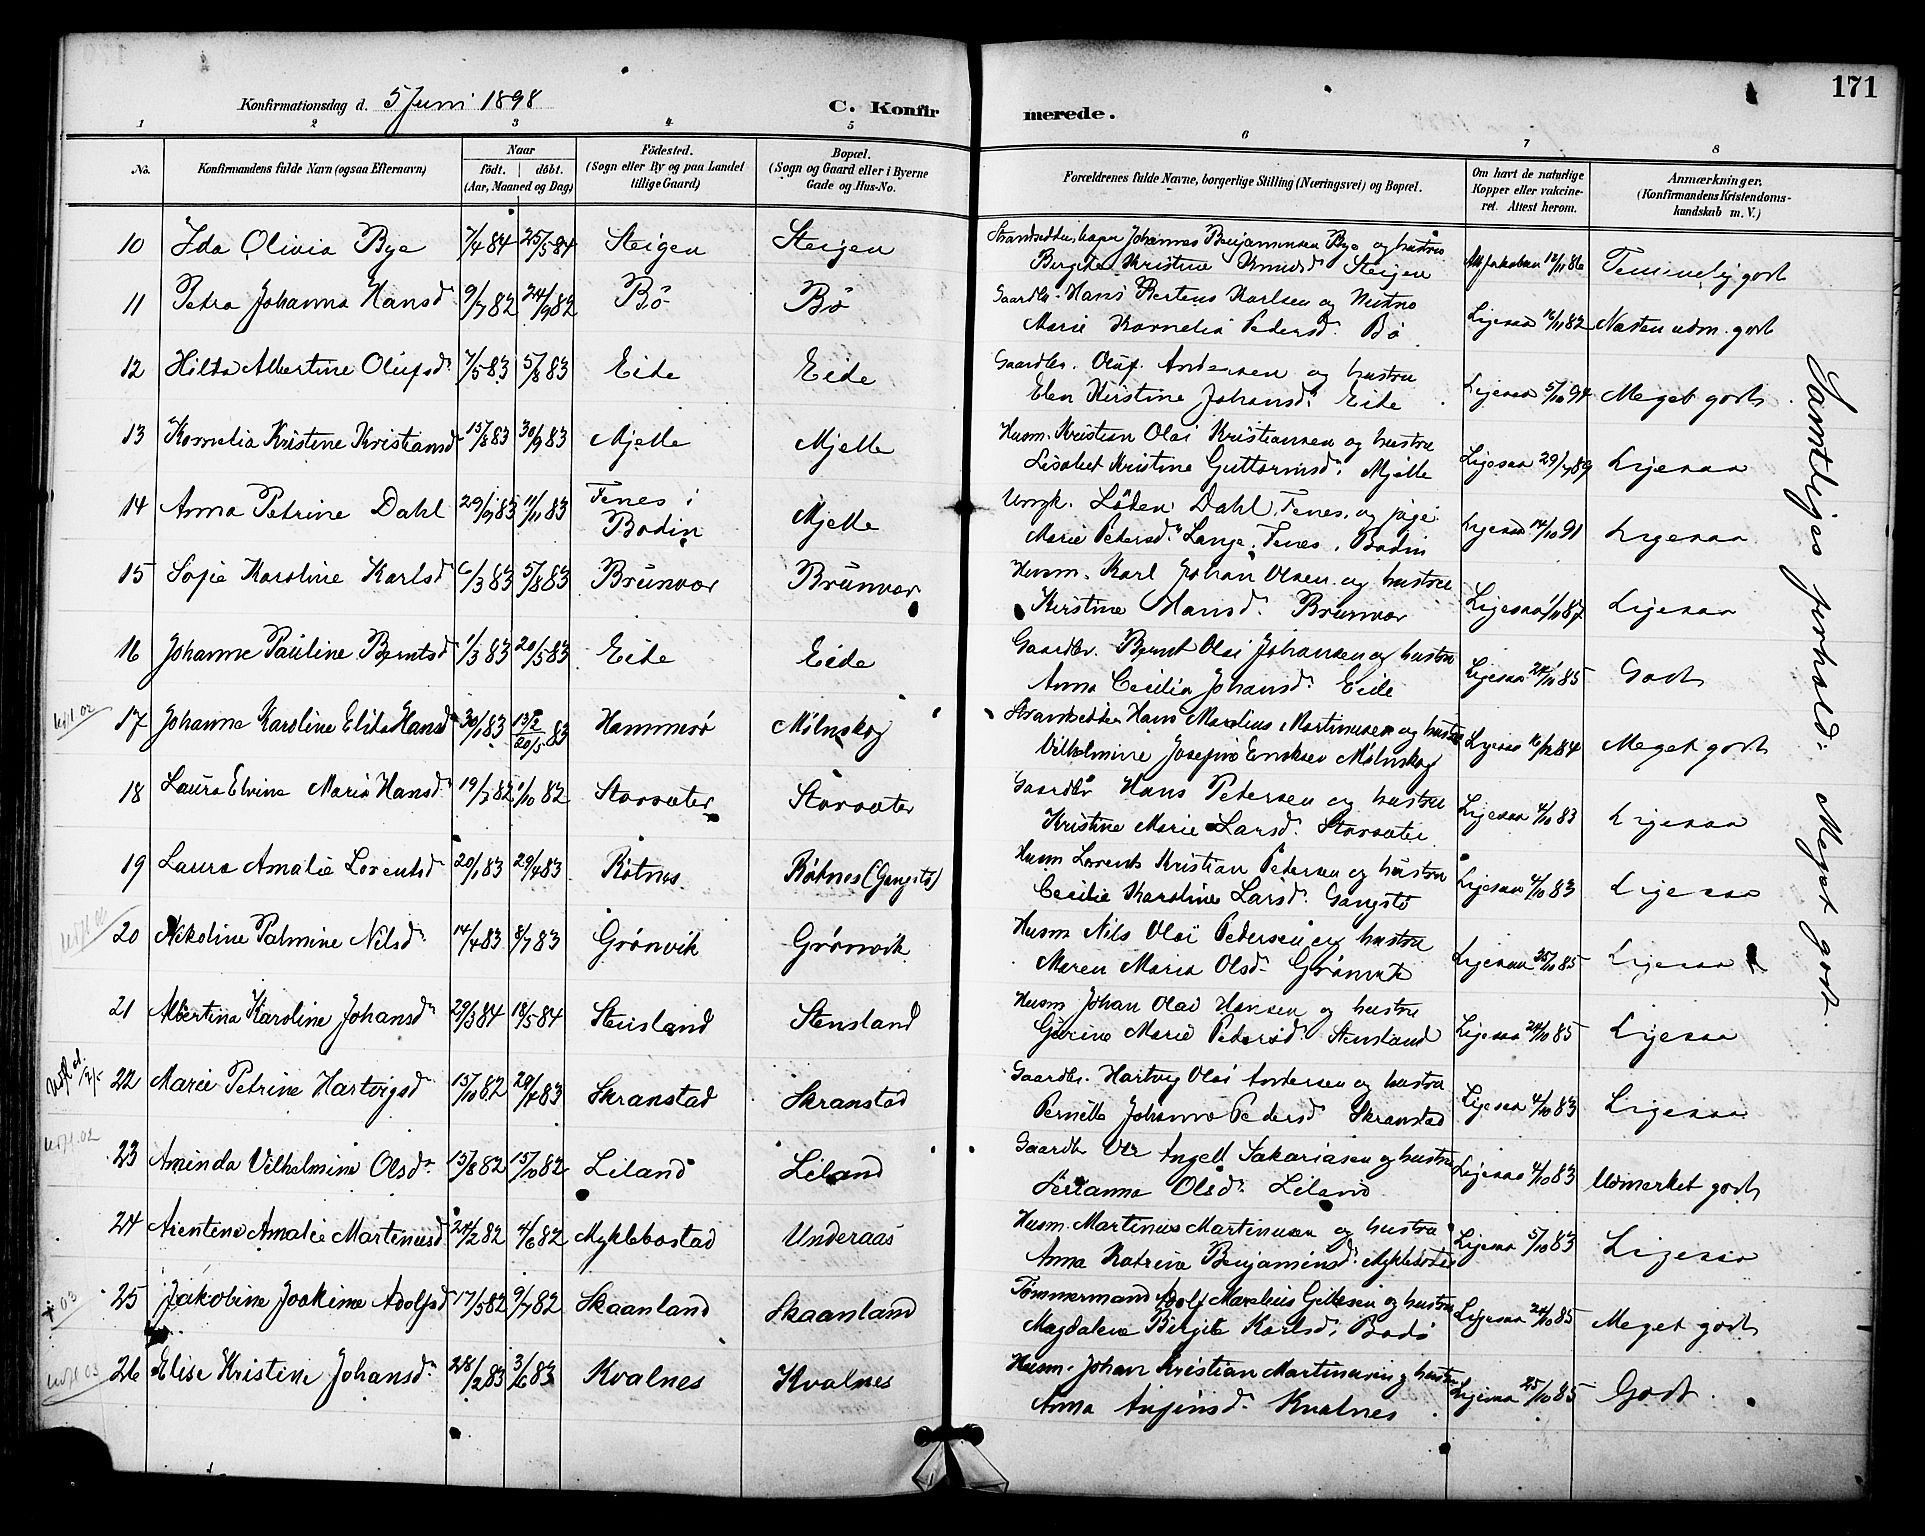 171
Konfirmationsdag d. 5 Juni 1898
C. Konfirmerede.
1 2 3 4 5 6 7 8
No.
Konfirmandens fulde Navn (ogsaa Efternavn)
Naar
födt. döbt.
(Aar, Maaned og Dag)
Födested.
(Sogn eller By og paa Landet
tillige Gaard)
Bopæl.
(Sogn og Gaard eller i Byerne
Gade og Hus-No.
Forældrenes fulde Navne, borgerlige Stilling (Næringsvei) og Bopæl.
Om havt de naturlige
Kopper eller vakcine-
ret. Attest herom.
Anmærkninger.
(Konfirmandens Kristendoms-
kundskab m. V.)
10 Ida Olivia Bye 7/4 84 25/5 84 Steigen Steigen Johannes Benjaminsen Bye og hustru
Birgite Kristine Knudsd. Steigen Att Jakobsen 12/11 86 Temmelig godt
11 Petra Johanna Hansd. 9/7 82 24/9 82 Bö Bö Gaardbr. Hans Bertens Karlsen og Hustru
Marie Kornelia Pedersd. Bö Ligesaa 16/11 82 Næsten udm. godt
12 Hilda Albertine Olufsd. 7/5 83 5/8 83 Eide Eide Gaardbr. Oluf Andersen og hustru
Elen Kirstine Johansd. Eide Ligesaa 5/10 91 Meget godt
13 Kornelia Kristine Kristiansd 15/8 83 30/9 83 Mjelle Mjelle Husm. Kristian Olai Kristiansen og hustru
Lisabet Kristine Guttormsd. Mjelle Ligesaa 29/7 89 Ligesaa
14 Anna Petrine Dahl 29/9 83 11/11 83 Fenes i
Bodin Mjelle Ungk. Löden Dahl, Fenes, og pige
Marie Pedersd. Lange, Fenes, Bodin Ligesaa 14/10 91 Ligesaa
15 Sofie Karoline Karlsd 6/3 83 5/8 83 Brunvær Brunvær Husm. Karl Johan Olsen og hustru
Kirstine Hansd. Brunvær Ligesaa 1/11 87 Ligesaa
16 Johanne Pauline Berntsd 1/3 83 20/5 83 Eide Eide Gaardbr. Bernt Olai Johansen og hustru
Anna Cecilia Johansd. Eide Ligesaa 24/10 85 Godt
17 Johanna Karoline Elida Hansd 30/1 83 13/2 20/5 83 Hammerö Mölnskog Strandsidder Hans Mardius Martinusen og hustru
Vilhelmine Josefine Eriksen Mölnskog Ligesaa 16/12 84 Meget godt
18 Laura Elvine Maria Hansd. 19/7 82 1/10 82 Storsæter Storsæter Gaardbr Hans Petersen og hustru
Kristine Marie Larsd. Storsæter Ligesaa 4/10 83 Ligesaa
19 Laura Amalie Lorentsd 20/1 83 29/4 83 Rötnes Rötnes (Gangstö) Husm Lorents Kristian Petersen og hustru
Cecilie Karoline Larsd. Gangstö Ligesaa 4/10 83 Ligesaa
20 Nikoline Palmine Nilsd. 14/4 83 8/7 83 Grönvik Grönvik Husm Nils Olai Pedersen og hustru
Maren Maria Olsd. Grönvik Ligesaa 25/10 85 Ligesaa
21 Albertina Karoline Johansd. 29/3 84 18/5 84 Stensland Stensland Husm Johan Olai Hansen og hustru
Gurine Marie Pedersd. Stensland Ligesaa 24/10 85 Ligesaa
22 Marie Petrine Hartvigsd. 15/10 82 29/4 83 Skranstad Skranstad Gaardbr. Hartvig Olai Andersen og hustru
Pernille Johanna Pedersd Skranstad Ligesaa 4/10 83 Ligesaa
utfl. 02
23 Aminda Vilhelmine Olsd. 15/8 82 15/10 82 Liland Liland Gaardbr Ole Angell Sakariasen og hustru
Serianna Olsd. Liland Ligesaa 4/10 83 Udmærket godt
24 Amalie Martinusd 24/2 82 4/6 82 Myklebostad Underaas Husm. Martinus Martinusen og hustru
Anna Katrine Benjaminsd. Myklebostad Ligesaa 5/10 83 Ligesaa
+ 03
25 Jakobine Joakime Adolfsd 17/5 82 9/7 82 Skaanland Skaanland Tömmermand Adolf Marelius Gillesen og hustru
Magdalene Birgite Karlsd. Bodö Ligesaa 24/10 85 Meget godt
utfl 03
26 Elise Kristine Johansd. 28/2 83 3/6 83 Kvalnes Kvalnes Husm. Johan Kristian Martinusen og hustru
Anna Kvalnes Ligesaa 25/10 85 Godt
Samtliges forhold: Meget godt.